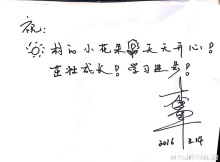 祝：
村的小花朵天天开心！
茁壮成长！学习进步！
2016 3.14